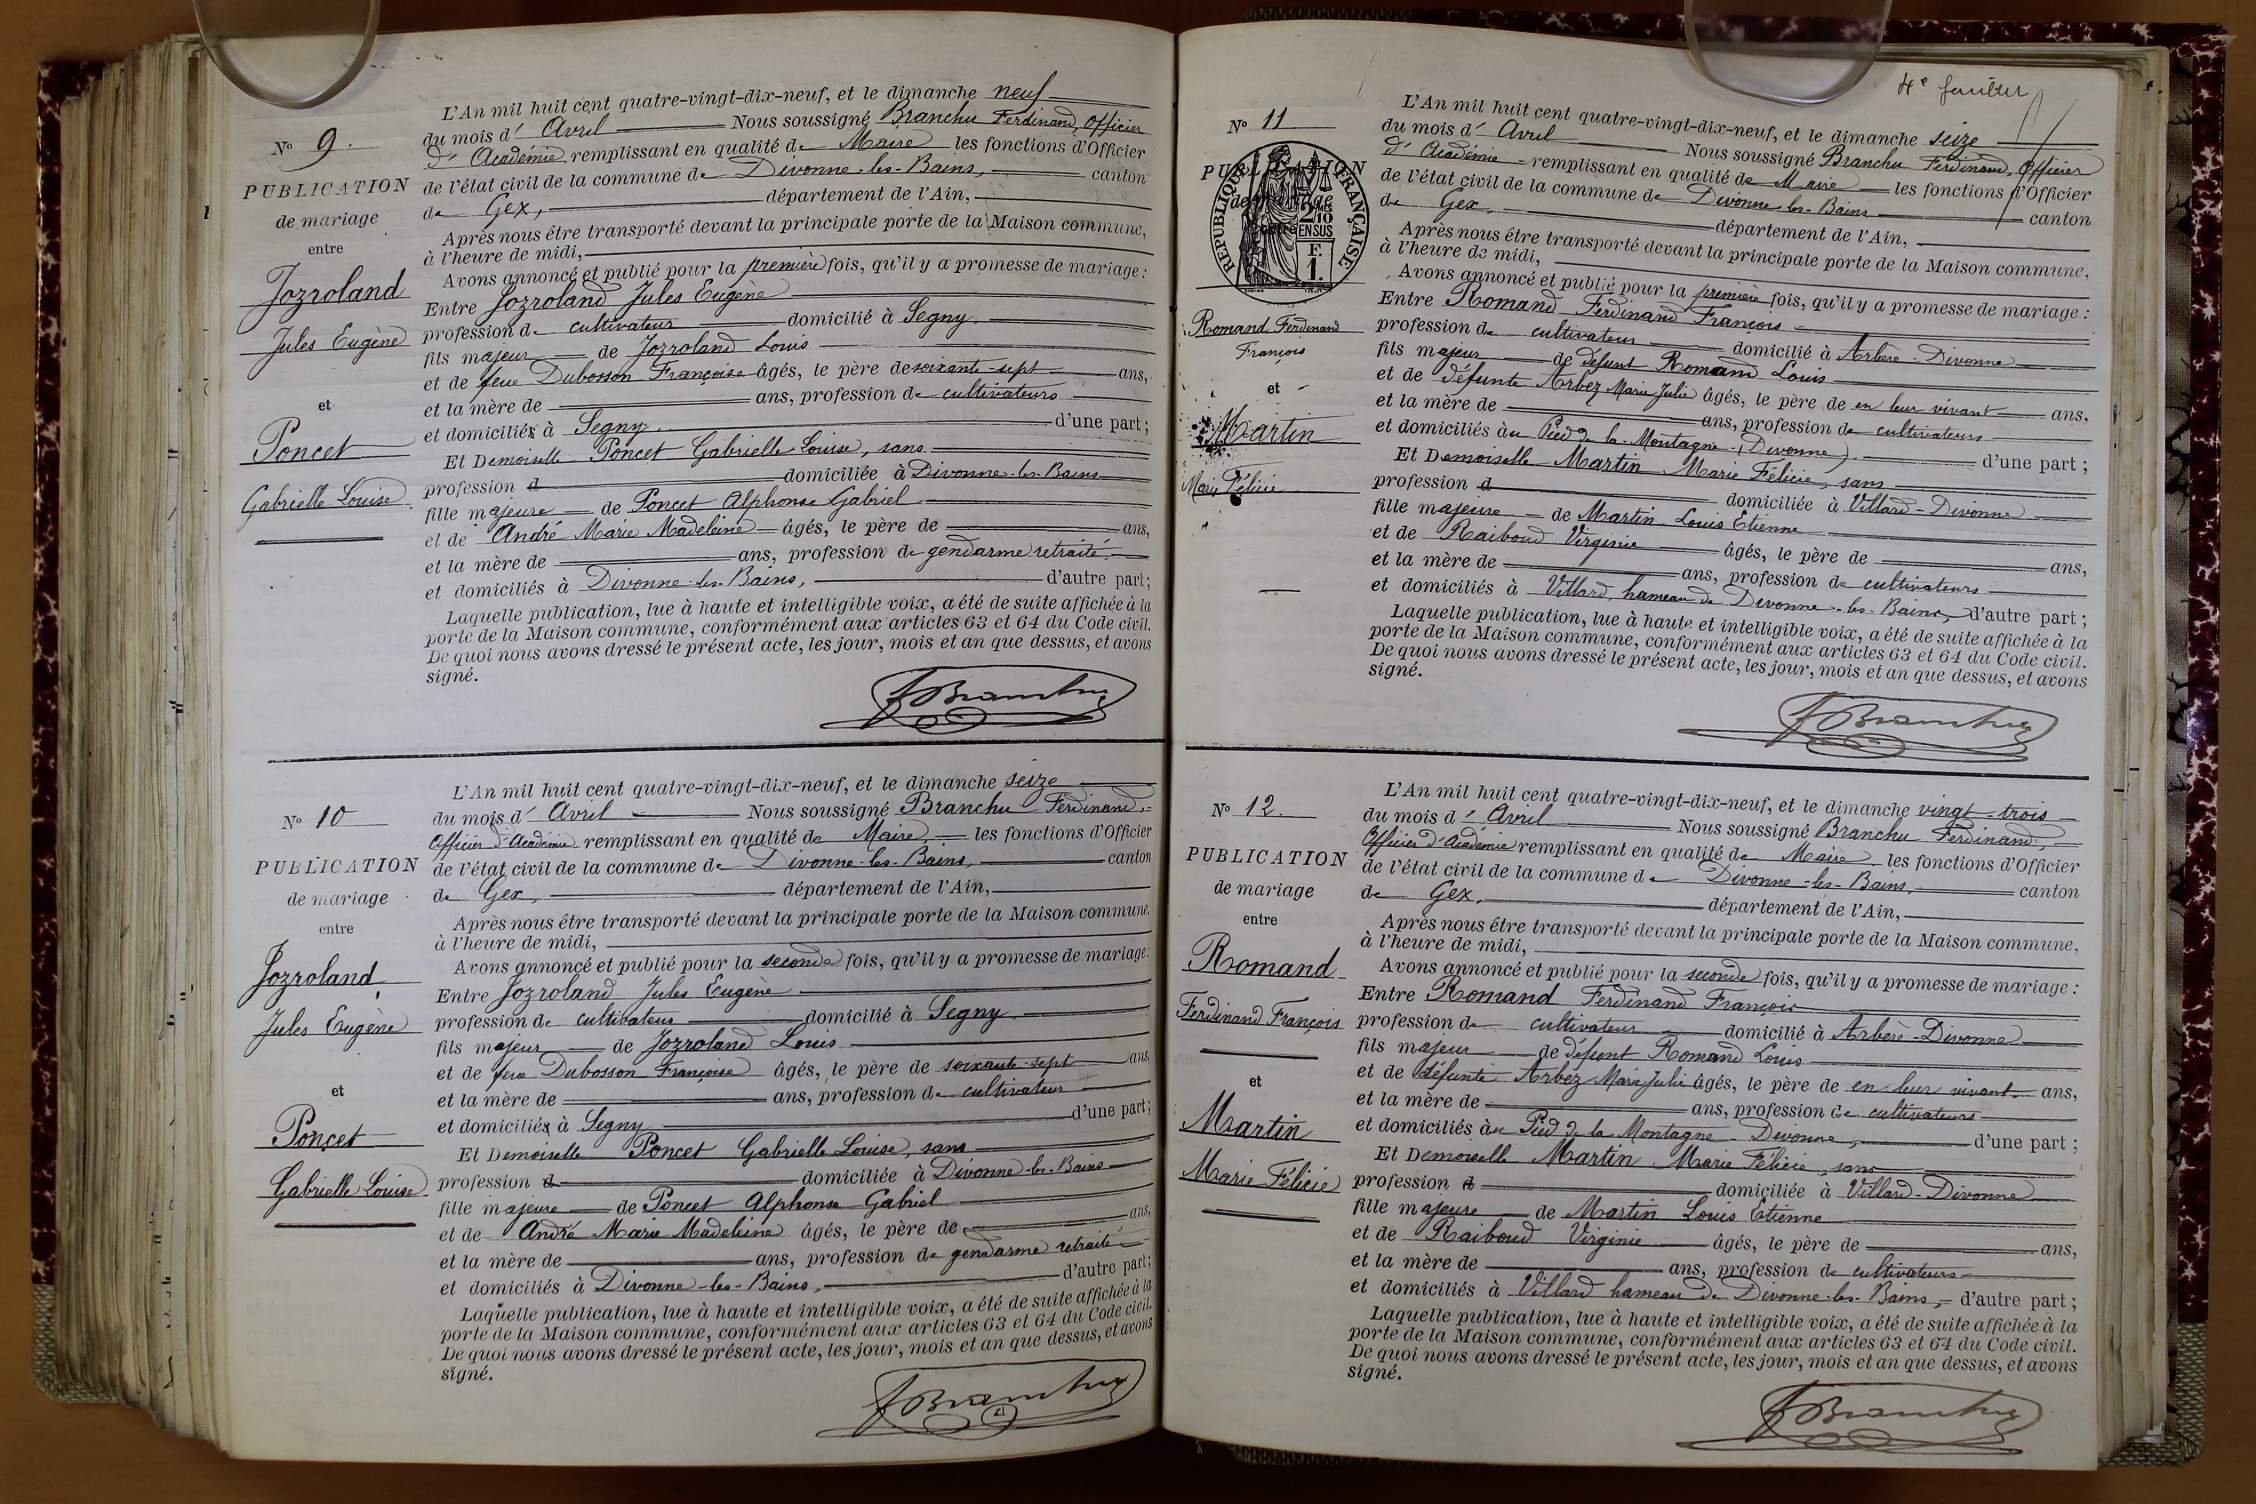 L'An mil huit cent quatre-vingt-dix-neuf, et le dimanche neuf
du mois d' Avril Nous soussigné Branchu Ferdinand, Officier
d'Académie remplissant en qualité de Maire les fonctions d'Officier
de l'état civil de la commune de Divonne-les-Bains, canton
de Gex, département de l'Ain,
Après nous être transporté devant la principale porte de la Maison commune,
à l'heure de midi,
Avons annoncé et publié pour la première fois, qu'il y a promesse de mariage :
Entre Jozroland Jules Eugène
profession de cultivateur domicilié à Segny
fils majeur de Jozroland Louis
et de feue Dubosson Françoise âgés, le père de soixante-sept ans,
et la mère de ans, profession de cultivateurs
et domiciliés à Segny d'une part ;
Et Demoiselle Poncet Gabrielle Louise, sans
profession d domiciliée à Divonne-les-Bains
fille majeure de Poncet Alphonse Gabriel
et de André Marie Madeleine âgés, le père de ans,
et la mère de ans, profession de gendarme retraité
et domiciliés à Divonne-les-Bains, d'autre part ;
Laquelle publication, lue à haute et intelligible voix, a été de suite affichée à la
porte de la Maison commune, conformément aux articles 63 et 64 du Code civil.
De quoi nous avons dressé le présent acte, les jour, mois et an que dessus, et avons
signé.
FBranchu
No 9.
PUBLICATION
de mariage
entre
Jozroland
Jules Eugène
et
Poncet
Gabrielle Louise
L'An mil huit cent quatre-vingt-dix-neuf, et le dimanche seize
du mois d' Avril Nous soussigné Branchu Ferdinand,
Officier d'Académie remplissant en qualité de Maire, les fonctions d'Officier
de l'état civil de la commune de Divonne-les-Bains, canton
de Gex, département de l'Ain,
Après nous être transporté devant la principale porte de la Maison commune,
à l'heure de midi,
Avons annoncé et publié pour la seconde fois, qu'il y a promesse de mariage :
Entre Jozroland Jules Eugène
profession de cultivateur domicilié à Segny
fils majeur de Jozroland Louis
et de feue Dubosson Françoise âgés, le père de soixante-sept ans,
et la mère de ans, profession de cultivateur
et domiciliés à Segny d'une part ;
Et Demoiselle Poncet Gabrielle Louise, sans
profession d domiciliée à Divonne-les-Bains
fille majeure de Poncet Alphonse Gabriel
et de André Marie Madeleine âgés, le père de ans,
et la mère de ans, profession de gendarme retraité
et domiciliés à Divonne-les-Bains, d'autre part ;
Laquelle publication, lue à haute et intelligible voix, a été de suite affichée à la
porte de la Maison commune, conformément aux articles 63 et 64 du Code civil.
De quoi nous avons dressé le présent acte, les jour, mois et an que dessus, et avons
signé.
FBranchu
No 10
PUBLICATION
de mariage
entre
Jozroland
Jules Eugène
et
Poncet
Gabrielle Louise
4e feuillet
L'An mil huit cent quatre-vingt-dix-neuf, et le dimanche seize
du mois d' Avril Nous soussigné Branchu Ferdinand, Officier
d'Académie remplissant en qualité de Maire les fonctions d'Officier
de l'état civil de la commune de Divonne-les-Bains canton
de Gex, département de l'Ain,
Après nous être transporté devant la principale porte de la Maison commune,
à l'heure de midi,
Avons annoncé et publié pour la première fois, qu'il y a promesse de mariage :
Entre Romand Ferdinand François
profession de cultivateur domicilié à Arbère-Divonne
fils majeur de défunt Romand Louis
et de défunte Arbez Marie Julie âgés, le père de en leur vivant ans,
et la mère de ans, profession de cultivateurs
et domiciliés à au Pied de la Montagne (Divonne) d'une part ;
Et Demoiselle Martin Marie Félicie, sans
profession d domiciliée à Villard-Divonne
fille majeure de Martin Louis Etienne
et de Raiboud Virginie âgés, le père de ans,
et la mère de ans, profession de cultivateurs
et domiciliés à Villard, hameau de Divonne-les-Bains, d'autre part ;
Laquelle publication, lue à haute et intelligible voix, a été de suite affichée à la
porte de la Maison commune, conformément aux articles 63 et 64 du Code civil.
De quoi nous avons dressé le présent acte, les jour, mois et an que dessus, et avons
signé.
FBranchu
No 11
PUBLICATION
de mariage
entre
RÉPUBLIQUE FRANÇAISE
2/10
EN SUS
F.
1.
Romand Ferdinand
François
et
Martin
Marie Félicie
L'An mil huit cent quatre-vingt-dix-neuf, et le dimanche vingt-trois
du mois d' Avril Nous soussigné Branchu Ferdinand,
Officier d'Académie remplissant en qualité de Maire les fonctions d'Officier
de l'état civil de la commune de Divonne-les-Bains, canton
de Gex, département de l'Ain,
Après nous être transporté devant la principale porte de la Maison commune,
à l'heure de midi,
Avons annoncé et publié pour la seconde fois, qu'il y a promesse de mariage :
Entre Romand Ferdinand François
profession de cultivateur domicilié à Arbère-Divonne
fils majeur de défunt Romand Louis
et de défunte Arbez Marie Julie âgés, le père de en leur vivant ans,
et la mère de ans, profession de cultivateurs
et domiciliés à au Pied de la Montagne Divonne, d'une part ;
Et Demoiselle Martin Marie Félicie, sans
profession d domiciliée à Villard-Divonne
fille majeure de Martin Louis Etienne
et de Raiboud Virginie âgés, le père de ans,
et la mère de ans, profession de cultivateurs
et domiciliés à Villard hameau de Divonne-les-Bains, d'autre part ;
Laquelle publication, lue à haute et intelligible voix, a été de suite affichée à la
porte de la Maison commune, conformément aux articles 63 et 64 du Code civil.
De quoi nous avons dressé le présent acte, les jour, mois et an que dessus, et avons
signé.
FBranchu
No 12.
PUBLICATION
de mariage
entre
Romand
Ferdinand François
et
Martin
Marie Félicie